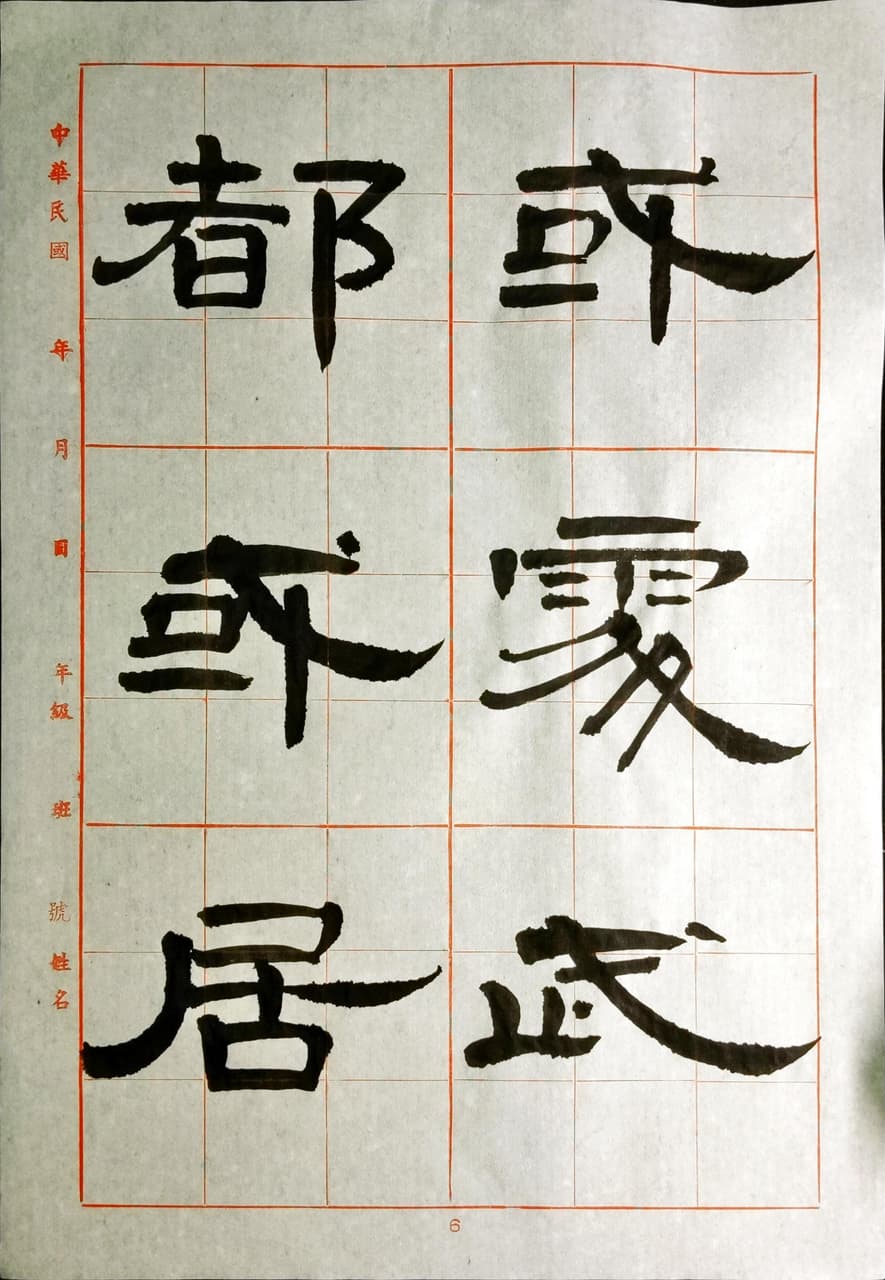 或處武
都或居
中華民國 年 月 日 年級 班 號 姓名
6